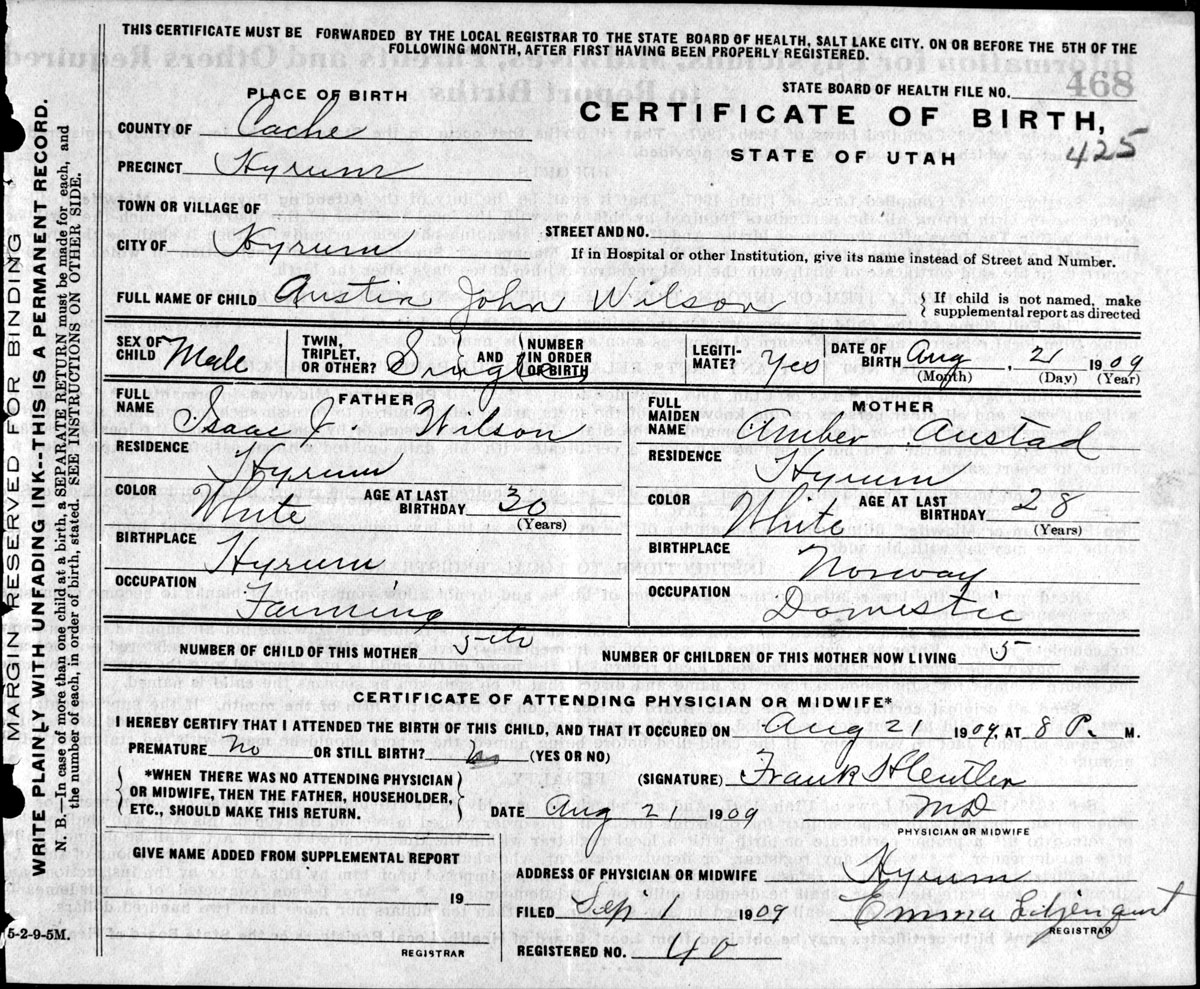 THIS CERTIFICATE MUST BE FORWARDED BY THE LOCAL REGISTRAR TO THE STATE BOARD OF HEALTH, SALT LAKE CITY. ON OR BEFORE THE 5TH OF THE
FOLLOWING MONTH, AFTER FIRST HAVING BEEN PROPERLY REGISTERED.
STATE BOARD OF HEALTH FILE NO. 468
PLACE OF BIRTH
CERTIFICATE OF BIRTH,
STATE OF UTAH
425
COUNTY OF Cache
PRECINCT Hyrum
TOWN OR VILLAGE OF
CITY OF Hyrum
STREET AND NO.
If in Hospital or other Institution, give its name instead of Street and Number.
FULL NAME OF CHILD Austin John Wilson
If child is not named, make
supplemental report as directed
SEX OF CHILD Male TWIN, TRIPLET, OR OTHER? Single AND NUMBER IN ORDER OF BIRTH LEGITI- MATE? Yes DATE OF BIRTH Aug, 21 1909
(Month) (Day) (Year)
FATHER
FULL NAME Isaac J Wilson
RESIDENCE Hyrum
COLOR White AGE AT LAST BIRTHDAY 30
(Years)
BIRTHPLACE Hyrum
OCCUPATION Farming
MOTHER
FULL MAIDEN NAME Amber Austad
RESIDENCE Hyrum
COLOR White AGE AT LAST BIRTHDAY 28
(Years)
BIRTHPLACE Norway
OCCUPATION Domestic
NUMBER OF CHILD OF THIS MOTHER 5th NUMBER OF CHILDREN OF THIS MOTHER NOW LIVING 5
CERTIFICATE OF ATTENDING PHYSICIAN OR MIDWIFE*
I HEREBY CERTIFY THAT I ATTENDED THE BIRTH OF THIS CHILD, AND THAT IT OCCURED ON Aug 21 1909. AT 8 P. M.
PREMATURE No OR STILL BIRTH? no (YES OR NO)
*WHEN THERE WAS NO ATTENDING PHYSICIAN
OR MIDWIFE, THEN THE FATHER, HOUSEHOLDER,
ETC., SHOULD MAKE THIS RETURN.
(SIGNATURE) Frank
DATE Aug 21 1909 MD
PHYSICIAN OR MIDWIFE
GIVE NAME ADDED FROM SUPPLEMENTAL REPORT
19
REGISTRAR
ADDRESS OF PHYSICIAN OR MIDWIFE Hyrum
FILED Sep 1 1909 Emma
REGISTRAR
REGISTERED NO. 40
MARGIN RESERVED FOR BINDING
WRITE PLAINLY WITH UNFADING INK--THIS IS A PERMANENT RECORD.
N. B.—In case of more than one child at a birth, a SEPARATE RETURN must be made for each, and
the number of each, in order of birth, stated. SEE INSTRUCTION ON OTHER SIDE.
5-2-9-5M.